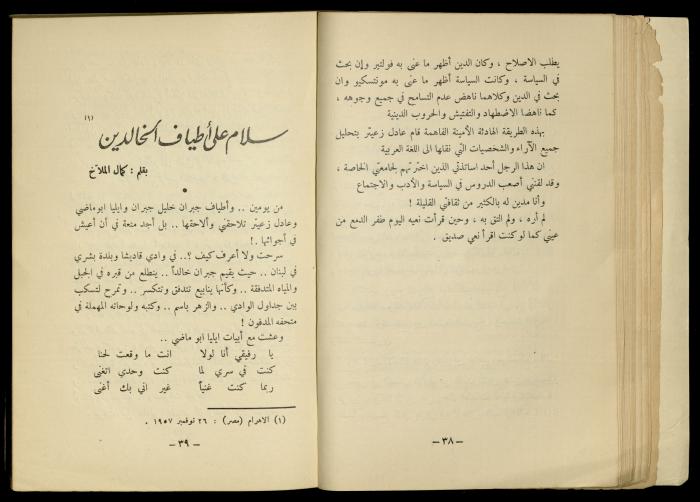 يطلب الاصلاح ، وكان الدين أظهر ما عنى به فولتير وإن بحث
في السياسة ، وكانت السياسة أظهر ما عنى به مونتسكيو وان
بحث في الدين وكلاهما ناهض عدم التسامح في جميع وجوهه ،
كما ناهضا الاضطهاد والتفتيش والحروب الدينية
بهذه الطريقة الهادئة الأمينة الفاهمة قام عادل زعيتر بتحليل
جميع الآراء والشخصيات التي نقلها الى اللغة العربية
ان هذا الرجل أحد اساتذتي الذين اخترتهم لجامعتي الخاصة ،
وقد لقنني أصعب الدروس في السياسة والأدب والاجتماع
وأنا مدين له بالكثير من ثقافتي القليلة !
لم أره ، ولم التق به ، وحين قرأت نعيه اليوم طفر الدمع من
عيني كما لو كنت اقرأ نعي صديق .
– ٣٨ –
سلام على أطياف الخالدين (١)
بقلم : كمال الملاخ
من يومين .. وأطياف جبران خليل جبران وايليا ابوماضي
وعادل زعيتر تلاحقني وألاحقها .. بل أجد متعة في أن أعيش
في أجوائها .!
سرحت ولا أعرف كيف ؟.. في وادي قاديشا وبلدة بشري
في لبنان .. حيث يقيم جبران خالداً .. يتطلع من قبره في الجبل
والمياه المتدفقة .. وكأنها ينابيع تتدفق وتتكسر .. وتمرح لتسكب
بين جداول الوادي .. والزهر باسم .. وكتبه ولوحاته المهملة في
متحفه المدفون !
وعشت مع أبيات ايليا ابو ماضي ..
يا رفيقي أنا لولا انت ما وقعت لحنا
كنت في سري لما كنت وحدي اتغنى
ربما كنت غنياً غير اني بك أغنى
(١) الاهرام (مصر) : ٢٦ نوفمبر ١٩٥٧ .
– ٣٩ –